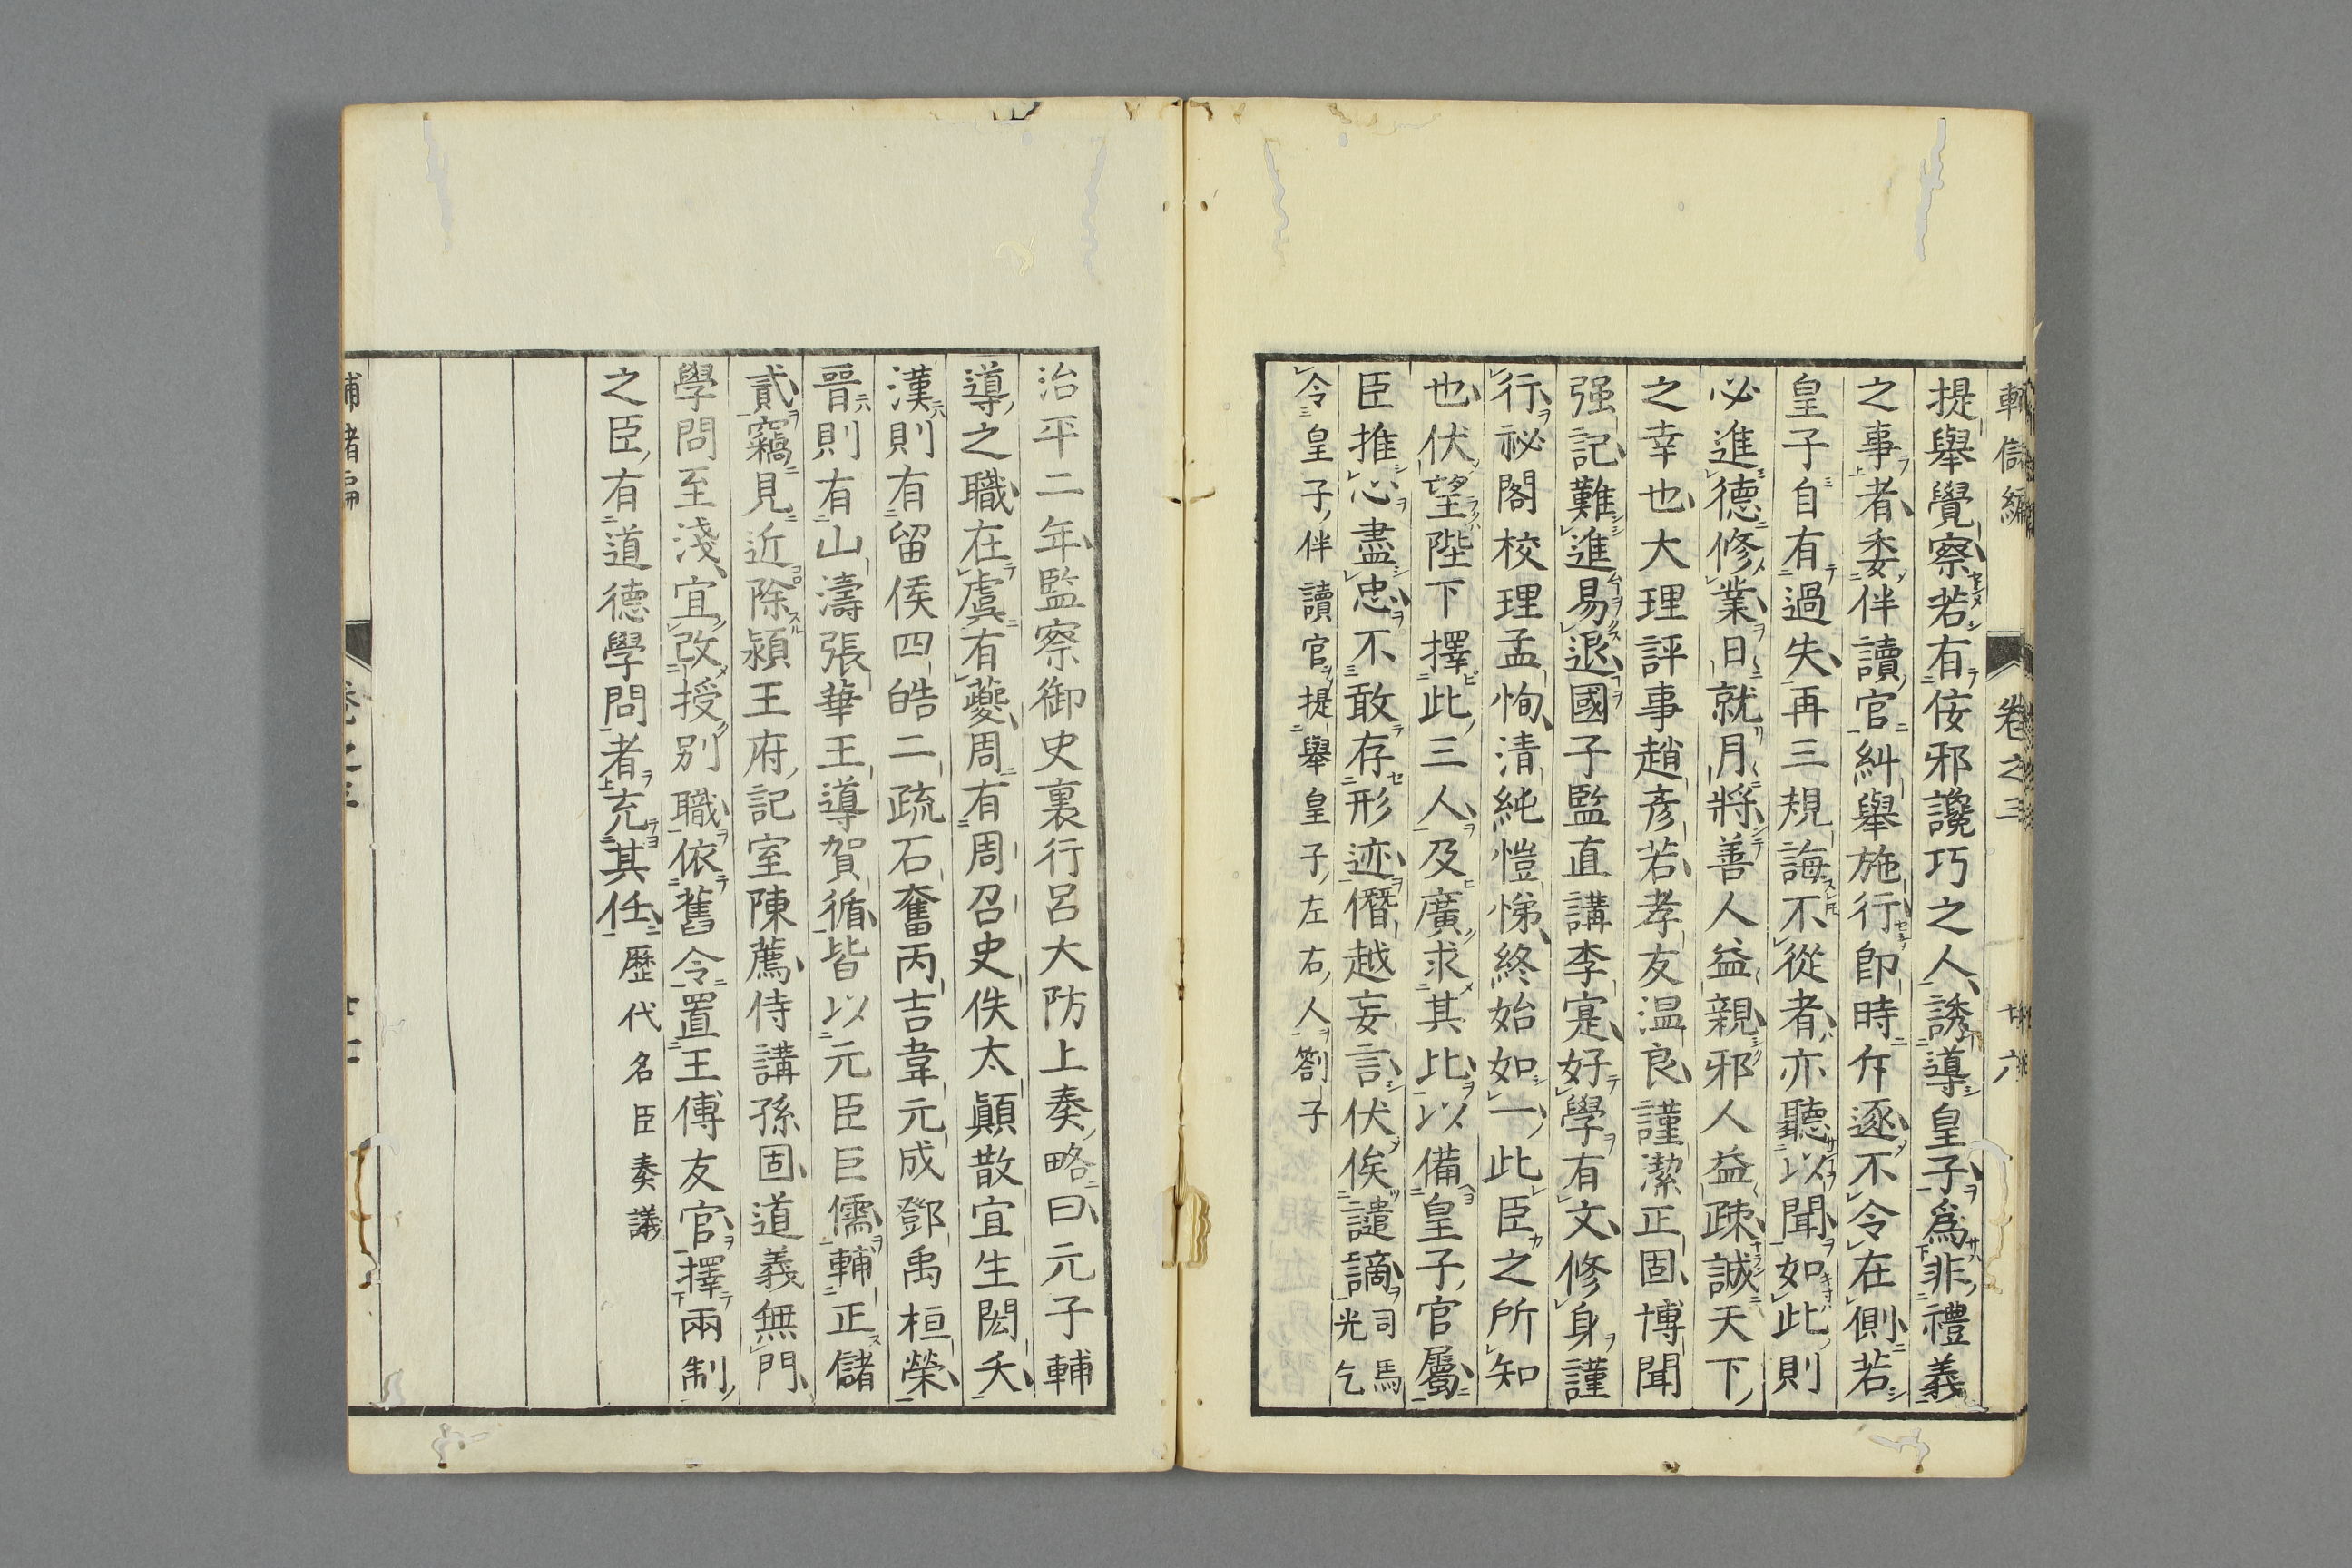 提舉覺察若有侫邪讒巧之人誘導皇子爲非禮義
之事者委伴讀官糾舉施行即時斥逐不令在側若
皇子自有過失再三規誨不從者亦聽以聞如此則
必進德修業日就月將善人益親邪人益疎誠天下
之幸也大理評事趙彦若孝友温良謹潔正固博聞
强記難進易退國子監直講李寔好學有文修身謹
行祕閣校理孟恂清純愷悌終始如一此臣之所知
也伏望陛下擇此三人及廣求其比以備皇子官屬
臣推心盡忠不敢存形迹僭越妄言伏俟譴謫司馬光乞
令皇子伴讀官提舉皇子左右人劄子
治平二年監察御史裏行呂大防上奏略曰元子輔
導之職在虞有夔周有周召史佚太顚散宜生閎夭
漢則有留侯四皓二疏石奮丙吉韋元成鄧禹桓榮
晉則有山濤張華王導賀循皆以元臣巨儒輔正儲
貳竊見近除潁王府記室陳薦侍講孫固道義無門
學問至淺宜改授別職依舊令置王傅友官擇兩制
之臣有道德學問者充其任歷代名臣奏議